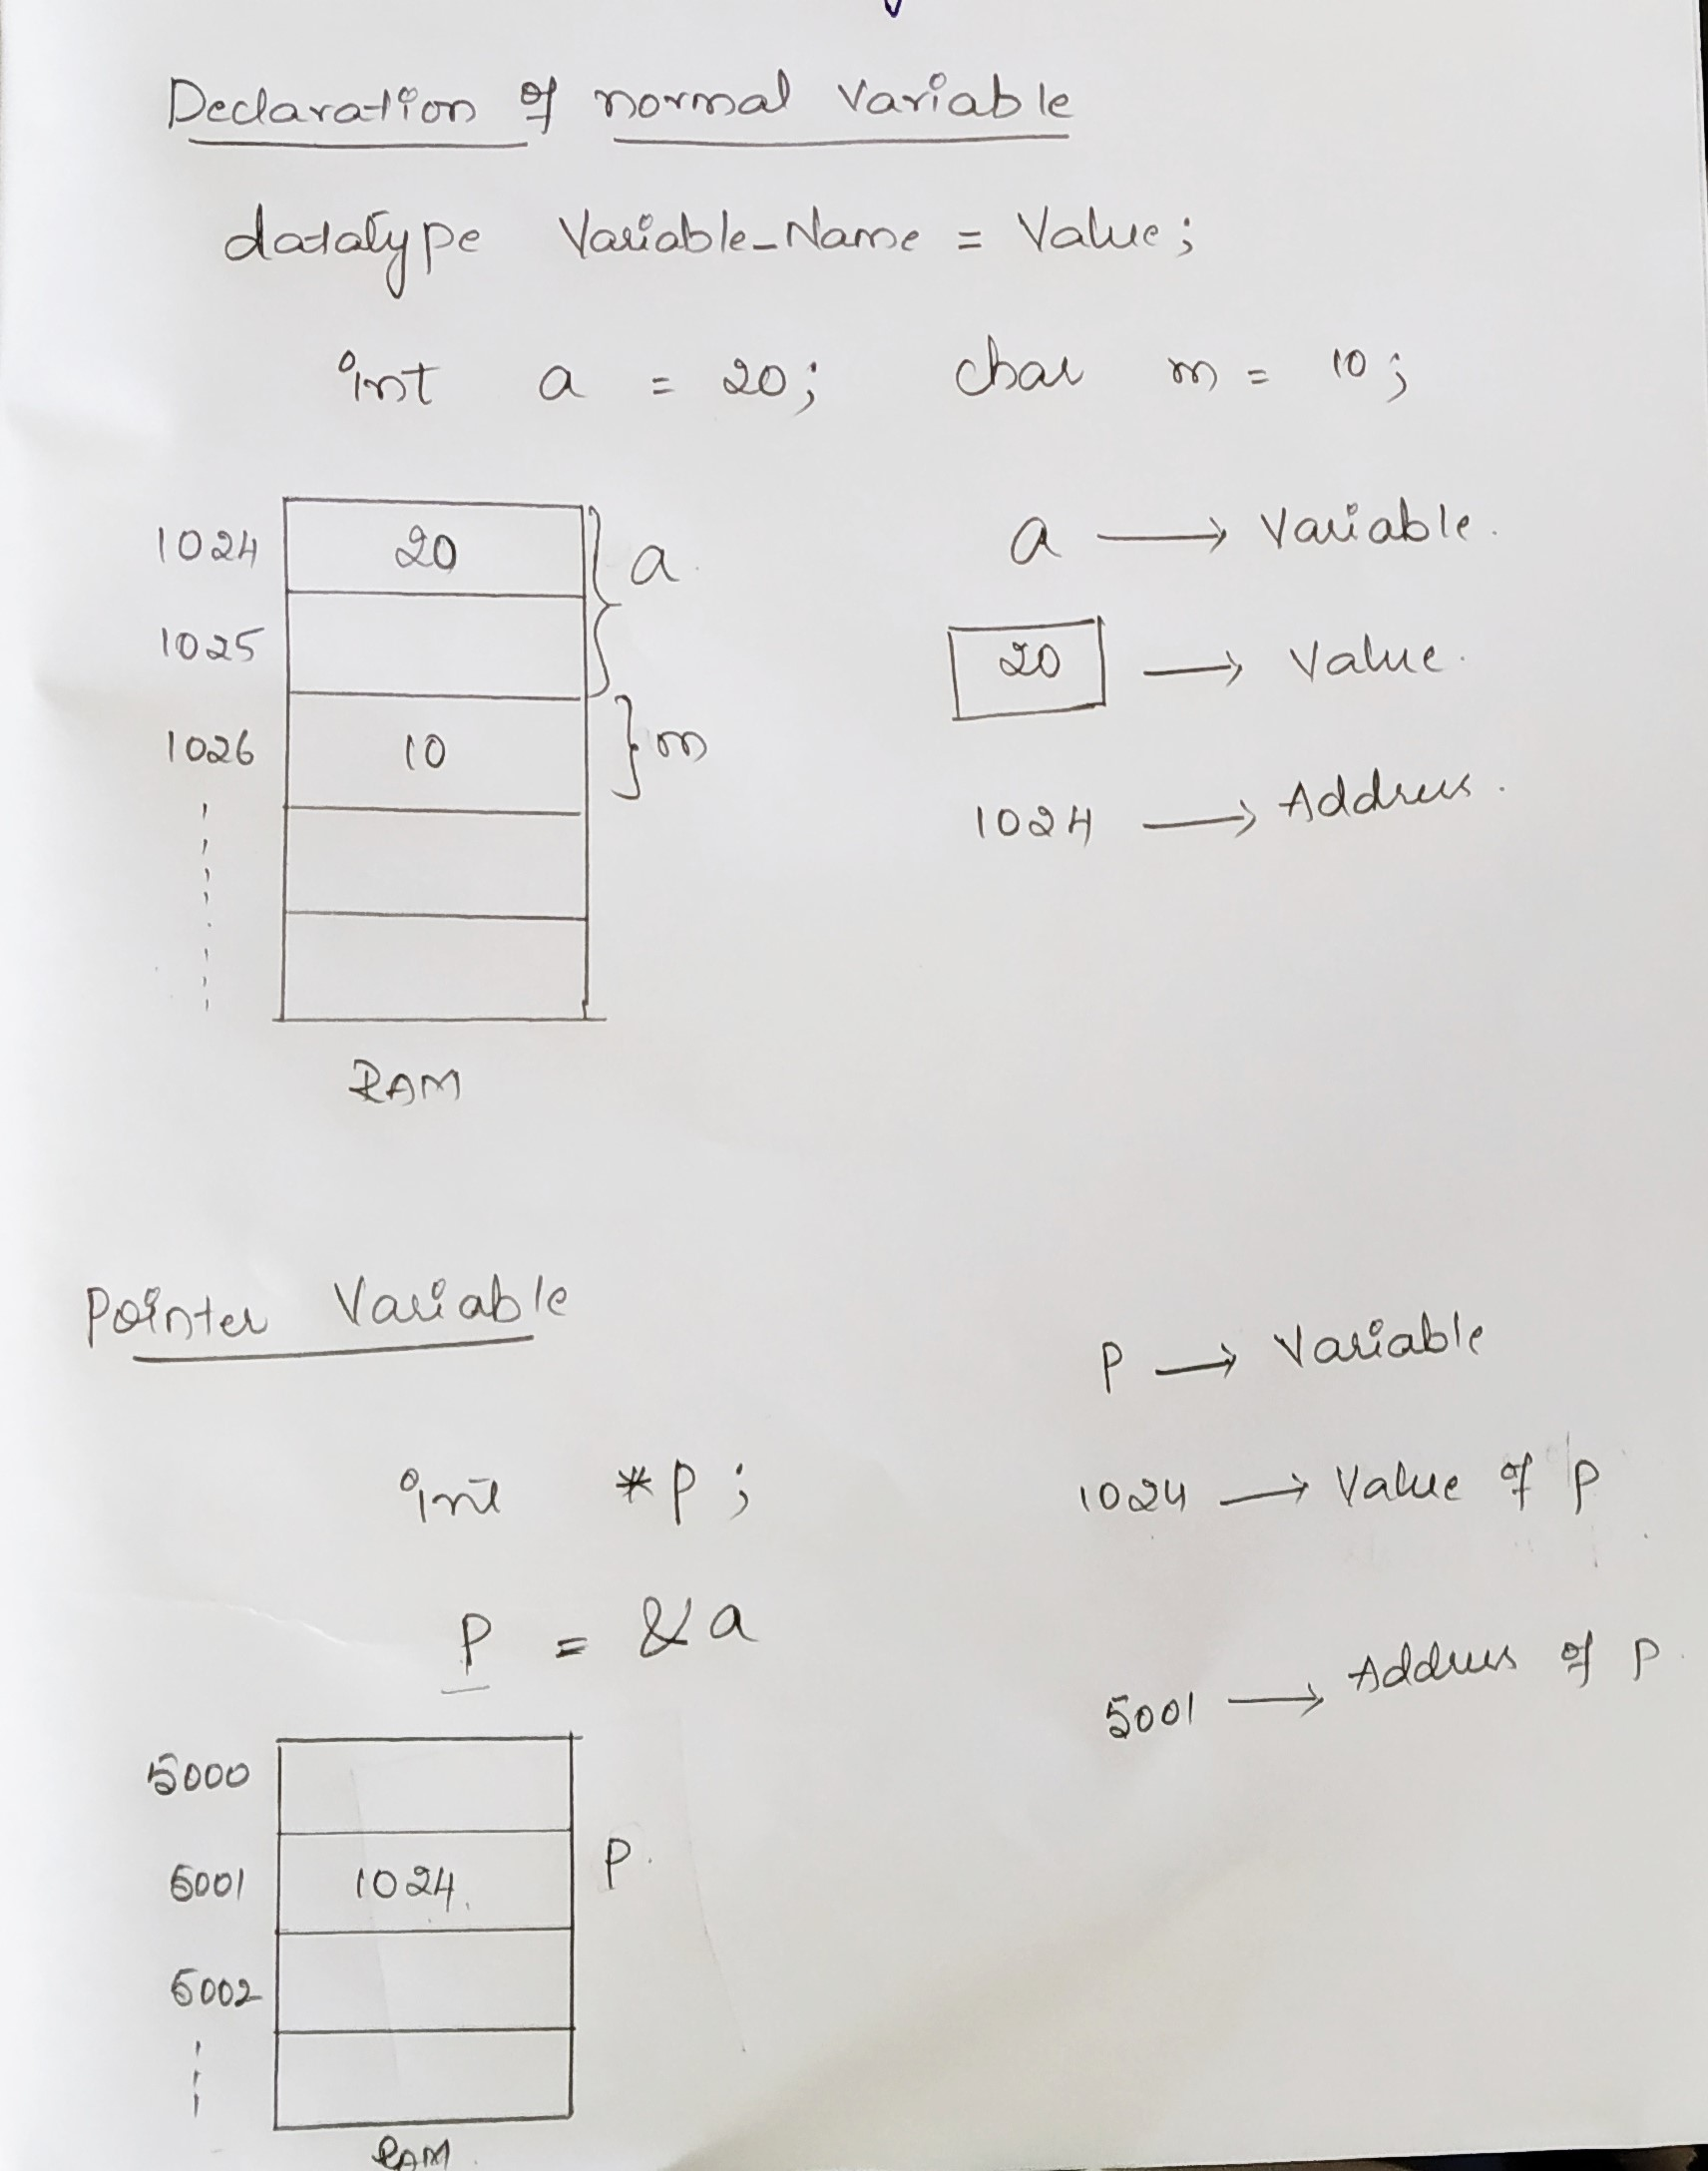 Declaration of normal variable
datatype Variable_Name = Value;
int a = 20; char m = 10;
1024 20 a
1025
1026 10 m
RAM
a → Variable.
20 → Value.
1024 → Address.
Pointer Variable
int *p;
P = &a
5000
5001 1024 P.
5002
RAM
P → Variable
1024 → Value of P
5001 → Address of P.